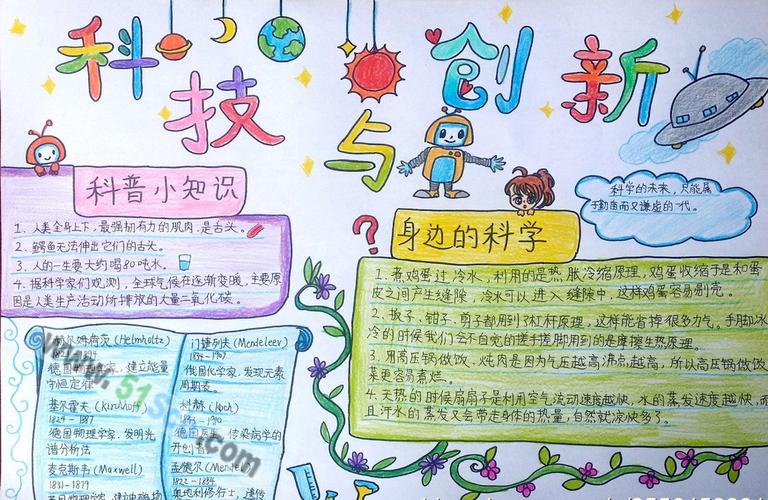 科技与创新
科普小知识
1、人类全身上下,最强韧有力的肌肉,是舌头。
2、鳄鱼无法伸出它们的舌头。
3、人的一生要大约喝80吨水。
4、据科学家们观测,全球气候在逐渐变暖,主要原
因是人类生产活动所排放的大量二氧化碳。
科学的未来,只能属
于勤奋而又谦虚的一代。
身边的科学
1、煮鸡蛋过冷水,利用的是热胀冷缩原理,鸡蛋收缩于是和蛋
皮之间产生缝隙,冷水可以进入缝隙中,这样鸡蛋容易剥壳。
2、扳子、钳子、剪子都用到了杠杆原理,这样能省掉很多力气。手脚冰
冷的时候我们会不自觉的搓手搓脚用到的是摩擦生热原理。
3、用高压锅做饭、炖肉是因为气压越高沸点越高,所以高压锅做饭
菜更容易煮烂。
4、天热的时候扇扇子是利用空气流动速度越快,水的蒸发速度越快,而
且汗水的蒸发又会带走身体的热量,自然就凉快多了。
赫尔姆霍茨(Helmholtz)
德国 学家,建立能量
守恒定律
基尔霍夫(Kirchhoff)
1824-1887
德国物理学家,发明光
谱分析法
麦克斯韦(Maxwell)
1831-1879
门捷列夫(Mendeleev)
1834-1907
俄国化学家,发现元素
周期表。
科赫(Koch)
1843-1910
德国医 传染病学的
开创者
孟德尔(Mendel)
1822-1884
奥地利修行士,遗传